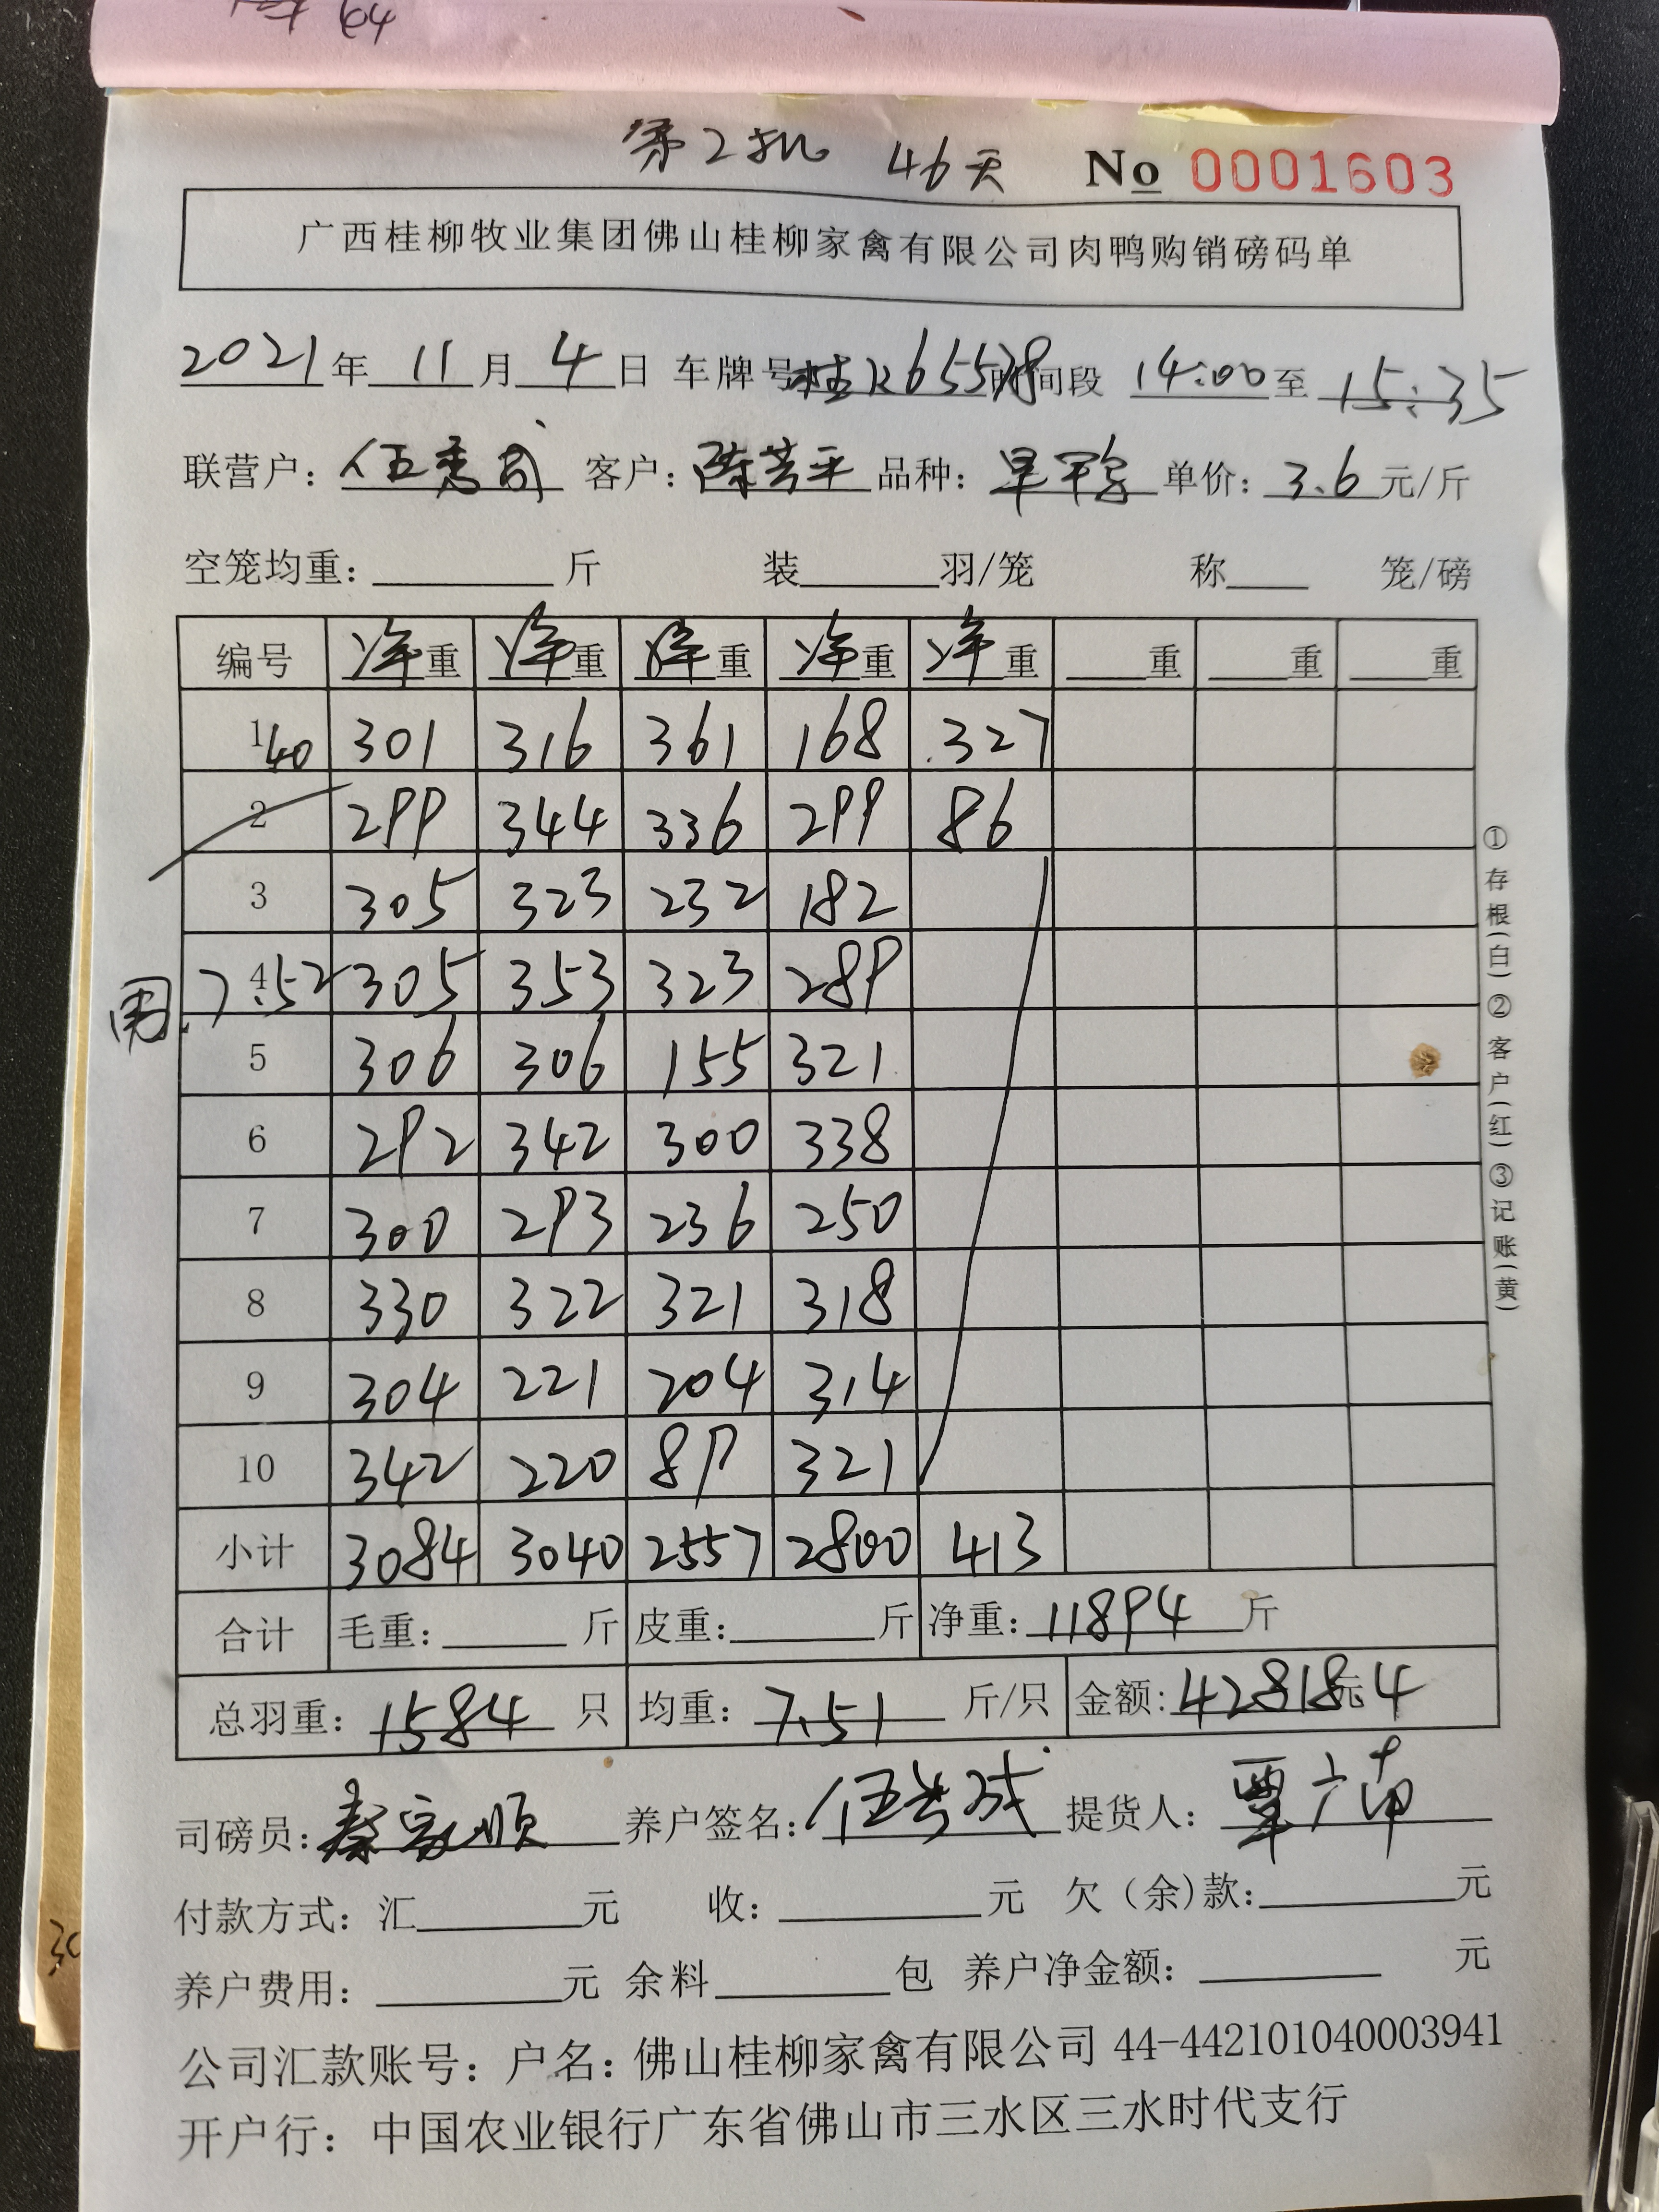 64
第2批 46天 No 0001603
广西桂柳牧业集团佛山桂柳家禽有限公司肉鸭购销磅码单
2021年11月4日 车牌号桂K65578时间段 14:00至15:35
联营户: 伍 客户: 陈芳平 品种: 旱鸭 单价: 3.6元/斤
空笼均重: 斤 装 羽/笼 称 笼/磅
编号 净重 净重 净重 净重 净重 重 重 重
1 40 301 316 361 168 327
2 299 344 336 299 86
3 305 323 232 182
4 7.52 305 353 323 289
5 306 306 155 321
6 292 342 300 338
7 300 293 236 250
8 330 322 321 318
9 304 221 204 314
10 342 220 89 321
小计 3084 3040 2557 2800 413
合计 毛重: 斤 皮重: 斤 净重: 11894 斤
总羽重: 1584 只 均重: 7.51 斤/只 金额: 42818.4元
司磅员: 秦家顺 养户签名: 伍 提货人: 覃广南
付款方式: 汇 元 收: 元 欠(余)款: 元
养户费用: 元 余料 包 养户净金额: 元
公司汇款账号: 户名: 佛山桂柳家禽有限公司 44-442101040003941
开户行: 中国农业银行广东省佛山市三水区三水时代支行
①存根(白)②客户(红)③记账(黄)
30